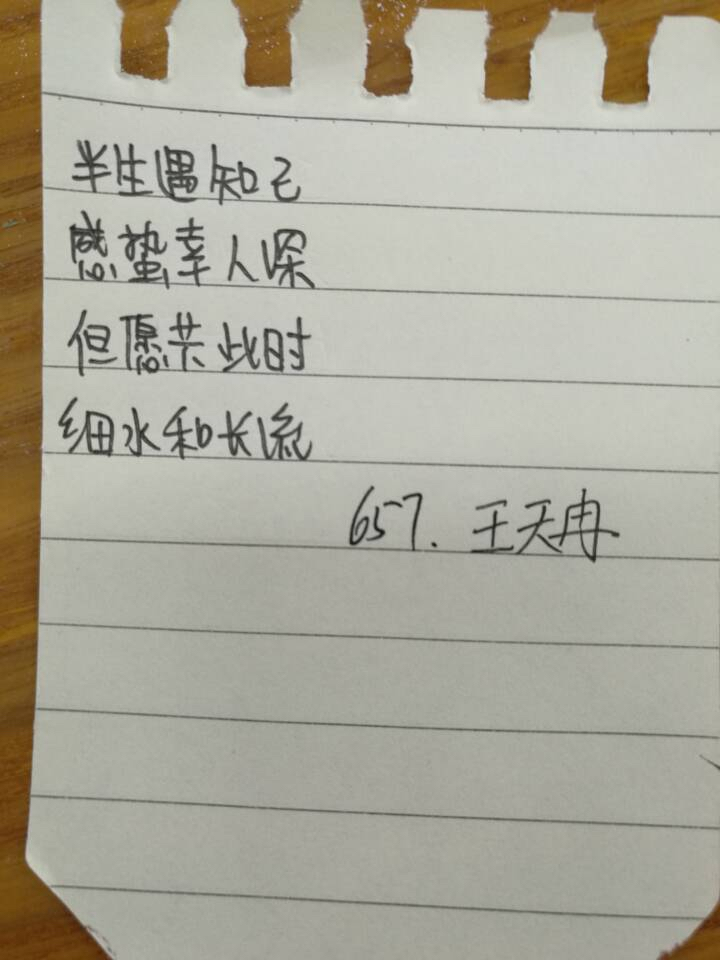 半生遇知己
感蛰幸人深
但愿共此时
细水和长流
657. 王天冉